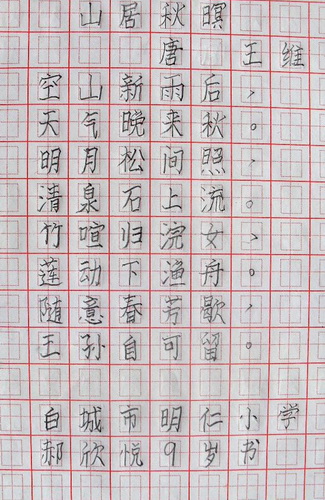 山居秋暝
唐 王维
空山新雨后，
天气晚来秋。
明月松间照，
清泉石上流。
竹喧归浣女、
莲动下渔舟。
随意春芳歇，
王孙自可留。
白城市明仁小学
郝欣悦9岁书